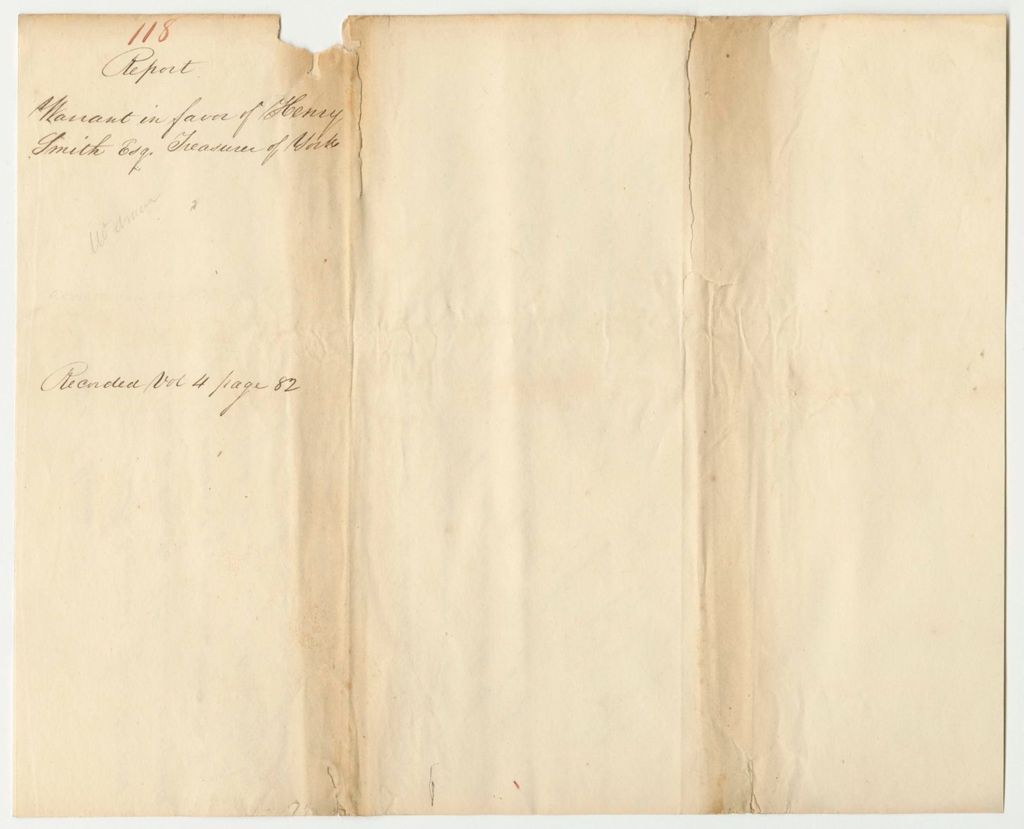 118
Report
Warrant in favor of Henry
Smith Esq. Treasurer of York
Recorded Vol 4 page 82